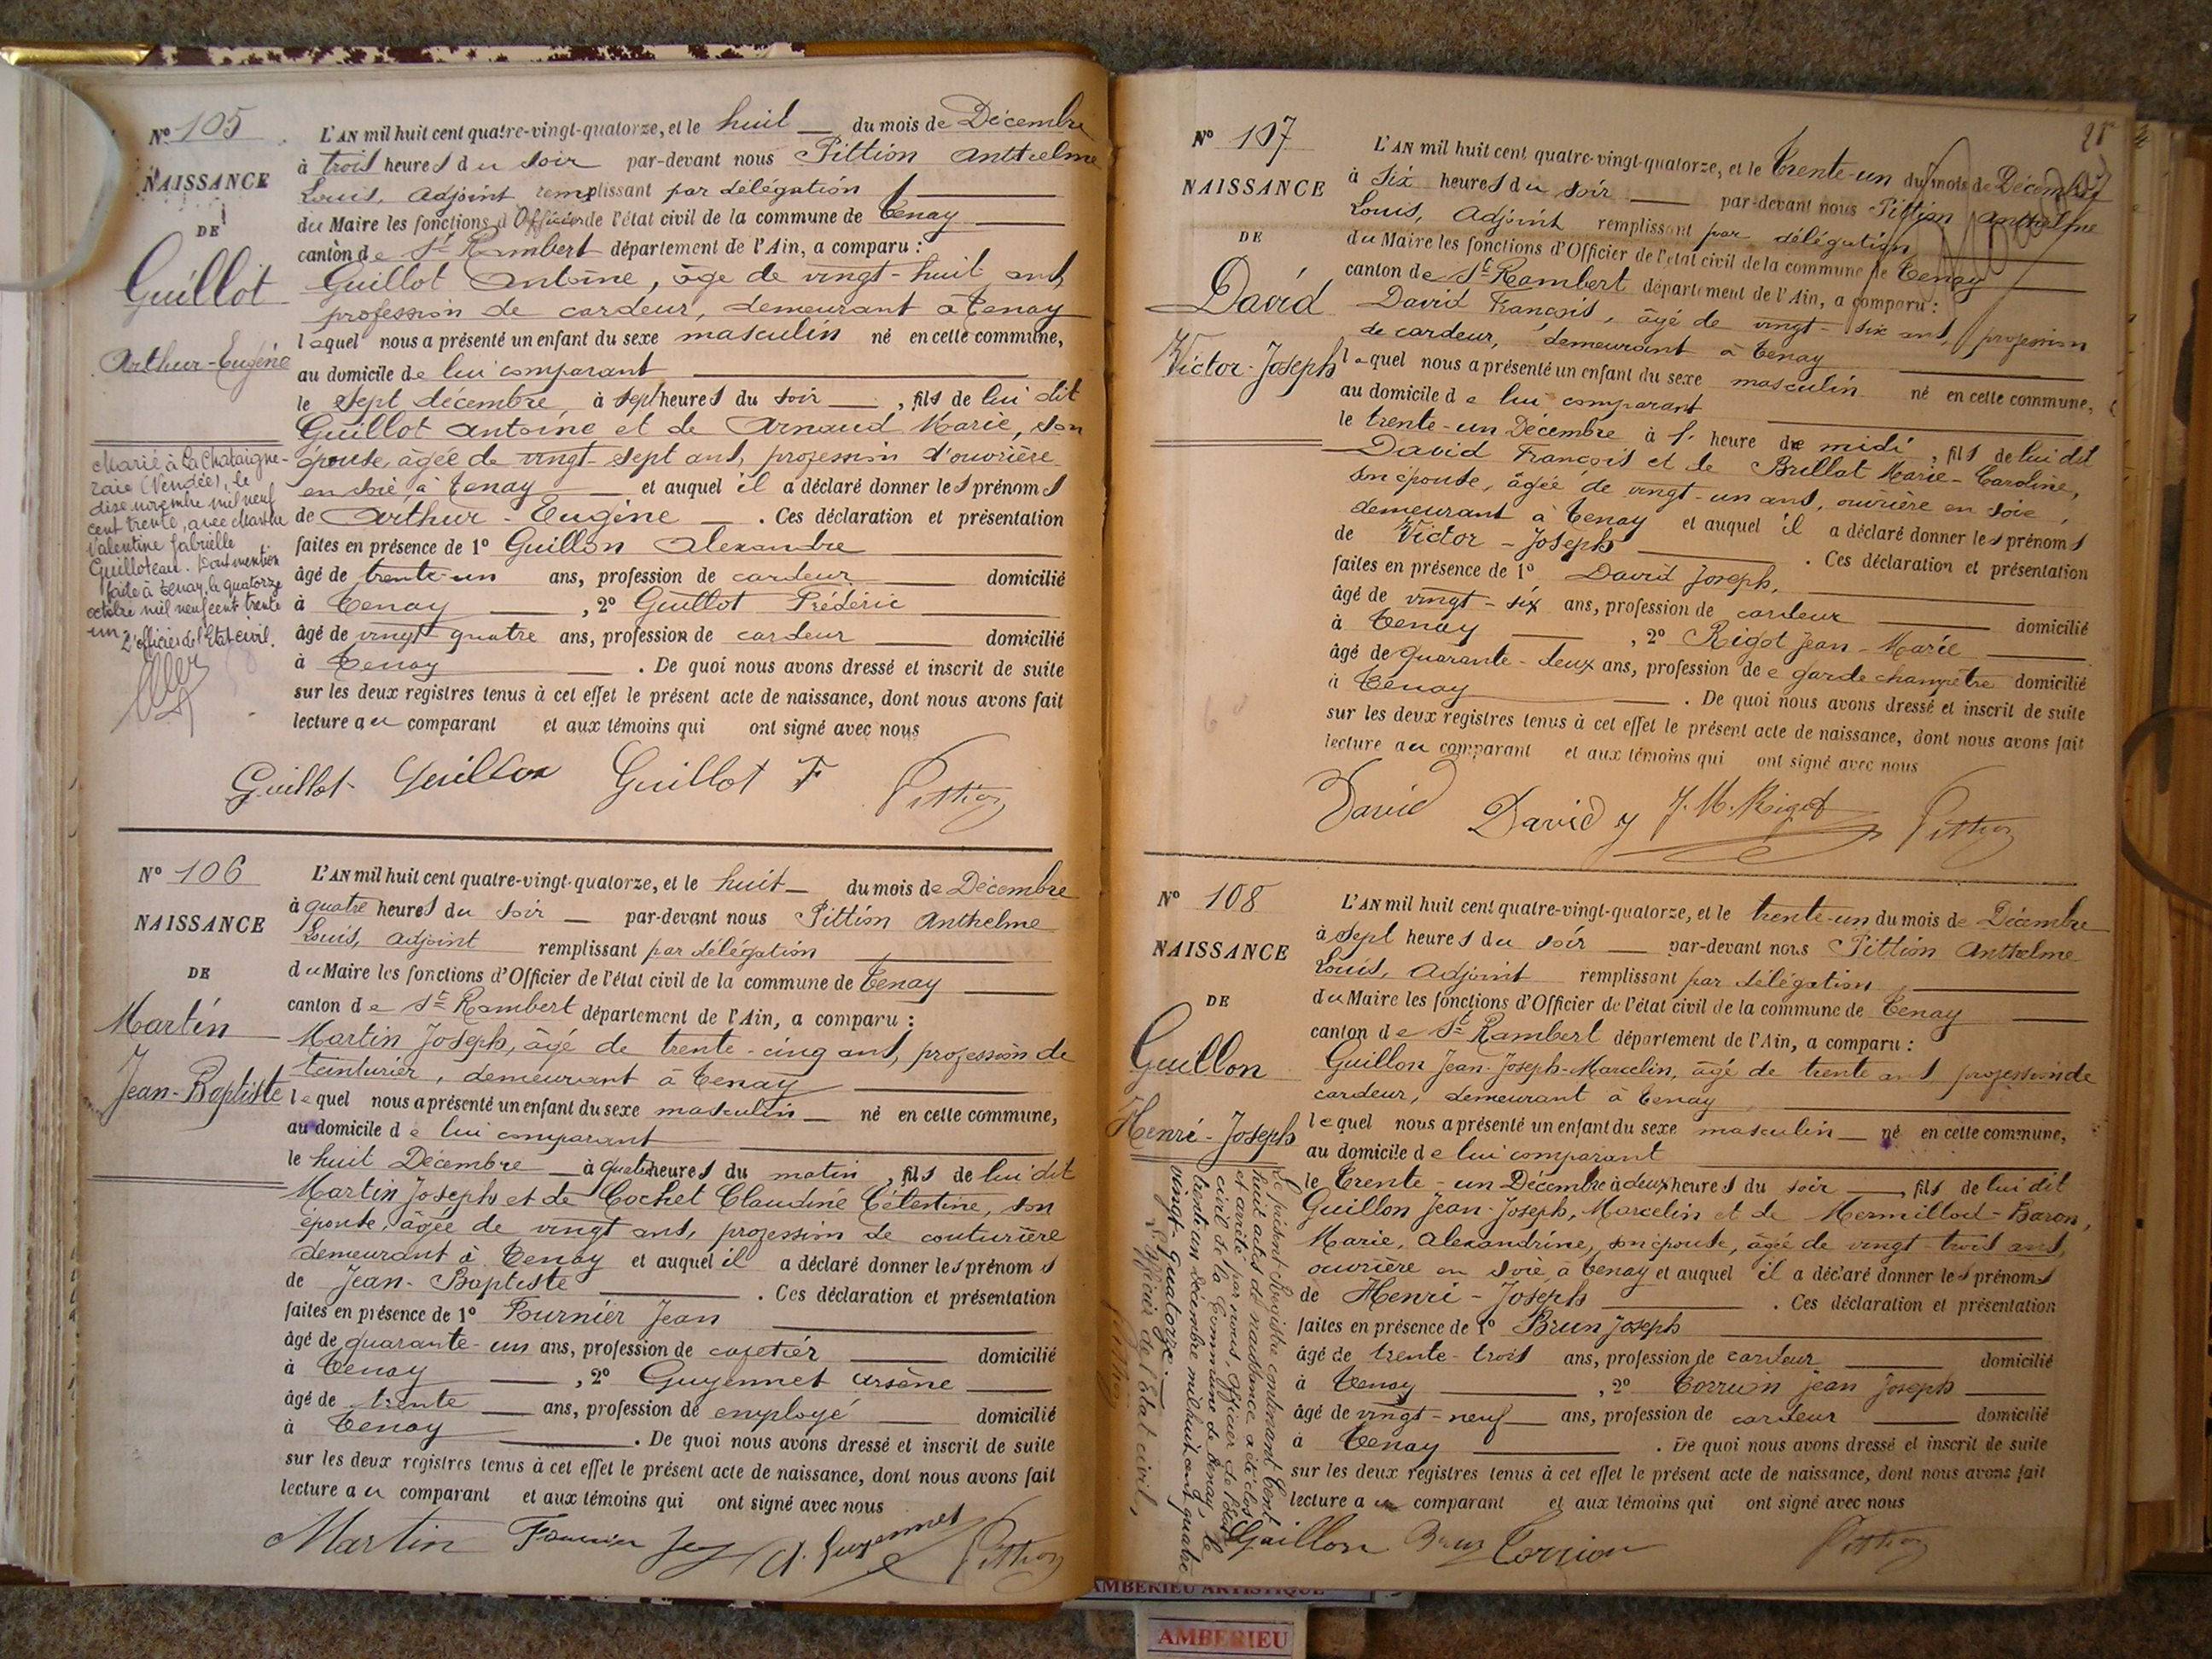 N° 105
NAISSANCE
DE
Guillot
Arthur-Eugène
Marié à La Chataigne-
raie (Vendée), le
dix
cent trente, avec Marthe
Valentine Gabrielle
Guilloteau. Dont mention
faite à Tenay, le quatorze
octobre mil neuf cent trente
un
L'officier de l'Etat civil.
L'AN mil huit cent quatre-vingt-quatorze, et le huit du mois de Décembre
à trois heures du soir par-devant nous Pittion Anthelme
Louis, Adjoint remplissant par délégation
du Maire les fonctions d'Officier de l'état civil de la commune de Tenay
canton de St Rambert département de l'Ain, a comparu :
Guillot Antoine, âge de vingt-huit ans,
profession de cardeur, demeurant à Tenay
lequel nous a présenté un enfant du sexe masculin né en cette commune,
au domicile de lui comparant
le sept décembre à sept heures du soir , fils de lui dit
Guillot Antoine et de Arnaud Marie, son
épouse, âgée de vingt-sept ans, profession d'ouvrière
en soie, à Tenay et auquel il a déclaré donner les prénoms
de Arthur-Eugène . Ces déclaration et présentation
faites en présence de 1° Guillon Alexandre
âgé de trente-un ans, profession de cardeur domicilié
à Tenay , 2° Guillot Frédéric
âgé de vingt-quatre ans, profession de cardeur domicilié
à Tenay . De quoi nous avons dressé et inscrit de suite
sur les deux registres tenus à cet effet le présent acte de naissance, dont nous avons fait
lecture au comparant et aux témoins qui ont signé avec nous
Guillot Guillon Guillot F Pittion
N° 106
NAISSANCE
DE
Martin
Jean-Baptiste
L'AN mil huit cent quatre-vingt-quatorze, et le huit du mois de Décembre
à quatre heures du soir par-devant nous Pittion Anthelme
Louis, adjoint remplissant par délégation
du Maire les fonctions d'Officier de l'état civil de la commune de Tenay
canton de St Rambert département de l'Ain, a comparu :
Martin Joseph, âgé de trente-cinq ans, profession de
teinturier, demeurant à Tenay
lequel nous a présenté un enfant du sexe masculin né en cette commune,
au domicile de lui comparant
le huit Décembre à quatre heures du matin , fils de lui dit
Martin Joseph et de Cochet Claudine Célestine, son
épouse, âgée de vingt ans, profession de couturière
demeurant à Tenay et auquel il a déclaré donner les prénoms
de Jean-Baptiste . Ces déclaration et présentation
faites en présence de 1° Fournier Jean
âgé de quarante-un ans, profession de cafetier domicilié
à Tenay , 2° Guyennet Arsène
âgé de trente ans, profession de employé domicilié
à Tenay . De quoi nous avons dressé et inscrit de suite
sur les deux registres tenus à cet effet le présent acte de naissance, dont nous avons fait
lecture au comparant et aux témoins qui ont signé avec nous
Martin Fournier A. Guyennet Pittion
N° 107
NAISSANCE
DE
David
Victor-Joseph
L'AN mil huit cent quatre-vingt-quatorze, et le trente-un du mois de Décembre
à six heures du soir par-devant nous Pittion Anthelme
Louis, Adjoint remplissant par délégation
du Maire les fonctions d'Officier de l'état civil de la commune de Tenay
canton de St Rambert département de l'Ain, a comparu :
David François, âgé de vingt-six ans, profession
de cardeur, demeurant à Tenay
lequel nous a présenté un enfant du sexe masculin né en cette commune,
au domicile de lui comparant
le trente-un Décembre à 1. heure de midi , fils de lui dit
David François et de Brillat Marie-Caroline,
son épouse, âgée de vingt-un ans, ouvrière en soie,
demeurant à Tenay et auquel il a déclaré donner les prénoms
de Victor-Joseph . Ces déclaration et présentation
faites en présence de 1° David Joseph,
âgé de vingt-six ans, profession de cardeur domicilié
à Tenay , 2° Rigot Jean-Marie
âgé de quarante-deux ans, profession de garde champêtre domicilié
à Tenay . De quoi nous avons dressé et inscrit de suite
sur les deux registres tenus à cet effet le présent acte de naissance, dont nous avons fait
lecture au comparant et aux témoins qui ont signé avec nous
David David J J. M. Rigot Pittion
N° 108
NAISSANCE
DE
Guillon
Henri-Joseph
Le présent Registre contenant Cent
huit actes de naissance, a été clos
et arrêté par nous, Officier de l'état
civil de la Commune de Tenay, le
trente-un Décembre mil huit cent quatre
vingt-quatorze.
L'Officier de l'état civil,
Pittion
L'AN mil huit cent quatre-vingt-quatorze, et le trente-un du mois de Décembre
à sept heures du soir par-devant nous Pittion Anthelme
Louis, Adjoint remplissant par délégation
du Maire les fonctions d'Officier de l'état civil de la commune de Tenay
canton de St Rambert département de l'Ain, a comparu :
Guillon Jean-Joseph-Marcelin, âgé de trente ans, profession de
cardeur, demeurant à Tenay
lequel nous a présenté un enfant du sexe masculin né en cette commune,
au domicile de lui comparant
le Trente-un Décembre à deux heures du soir fils de lui dit
Guillon Jean-Joseph, Marcelin et de Mermillod-Baron,
Marie, Alexandrine, son épouse, âgée de vingt-trois ans,
ouvrière en soie, à Tenay et auquel il a déclaré donner les prénoms
de Henri-Joseph . Ces déclaration et présentation
faites en présence de 1° Brun Joseph
âgé de trente-trois ans, profession de cardeur domicilié
à Tenay , 2° Jean Joseph
âgé de vingt-neuf ans, profession de cardeur domicilié
à Tenay . De quoi nous avons dressé et inscrit de suite
sur les deux registres tenus à cet effet le présent acte de naissance, dont nous avons fait
lecture au comparant et aux témoins qui ont signé avec nous
Guillon Brun Pittion
AMBERIEU ARTISTIQUE
AMBERIEU